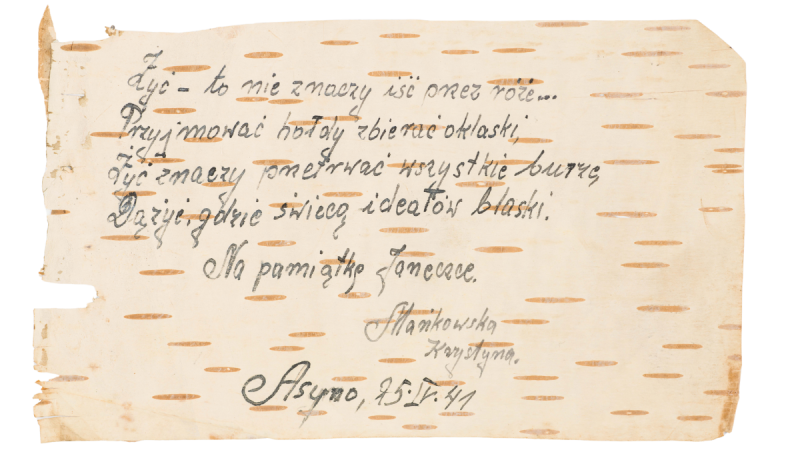 Żyć – to nie znaczy iść przez róże...
Przyjmować hołdy zbierać oklaski,
Żyć znaczy przetrwać wszystkie burze,
Dążyć, gdzie świecą ideałów blaski.
Na pamiątkę Janeczce.
Mańkowska
Krystyna.
Asyno, 25.IV.41